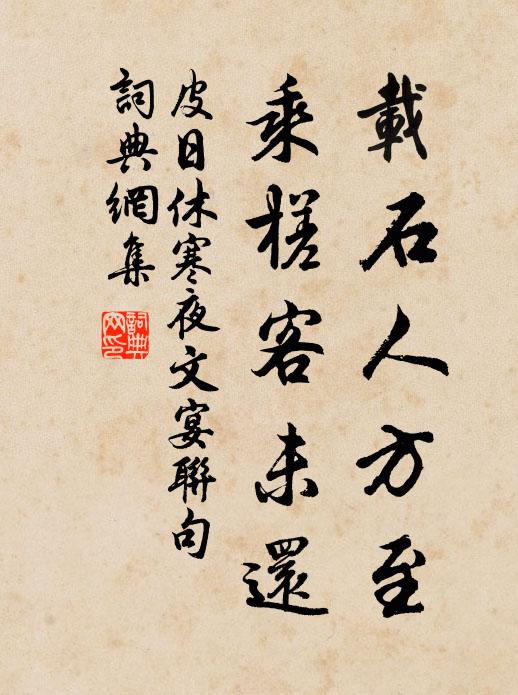 載石人方至
乘槎客未還
皮日休寒夜文宴聯句
詞典網集
詞典網印